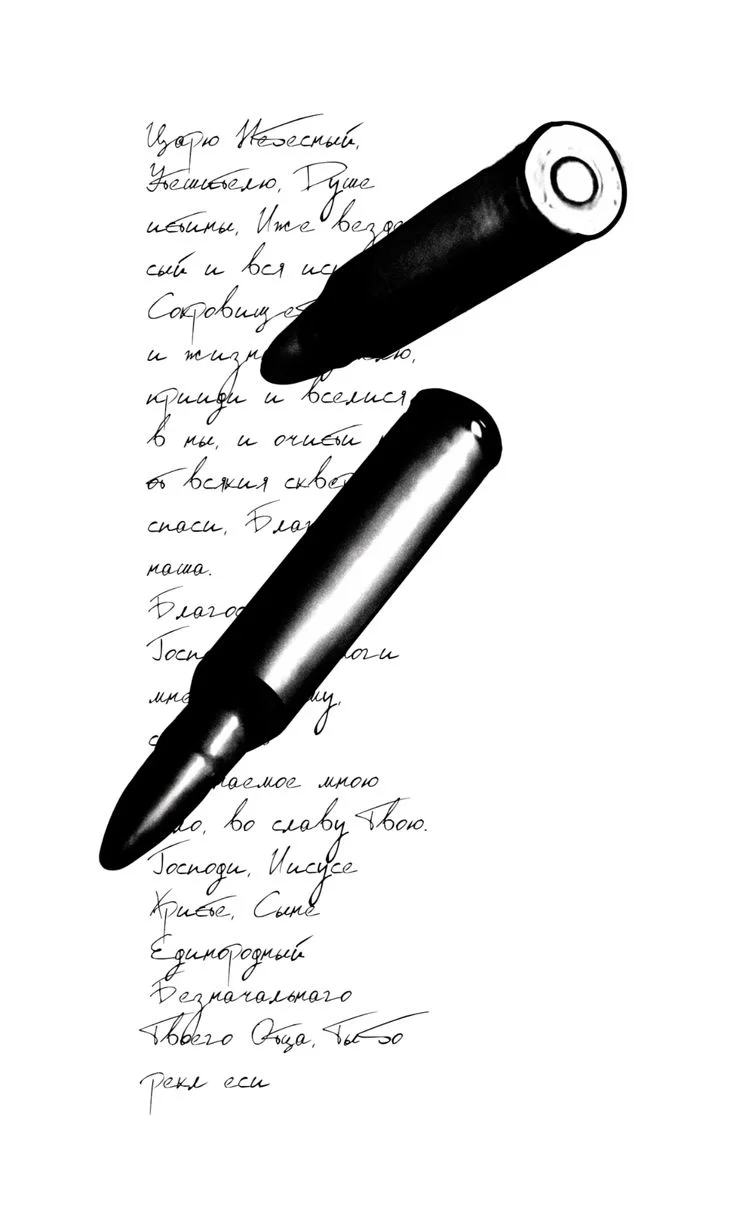 Царю Небесный,
Утешителю, Душе
истины, Иже везде
сый и вся
Сокровище
и
прииди и вселися
в ны, и очисти
от всякия
спаси,
наша.

мною
во славу Твою.
Господи, Иисусе
Христе, Сыне
Единородный
Безначальнаго
Твоего Отца, Ты бо
рекл еси